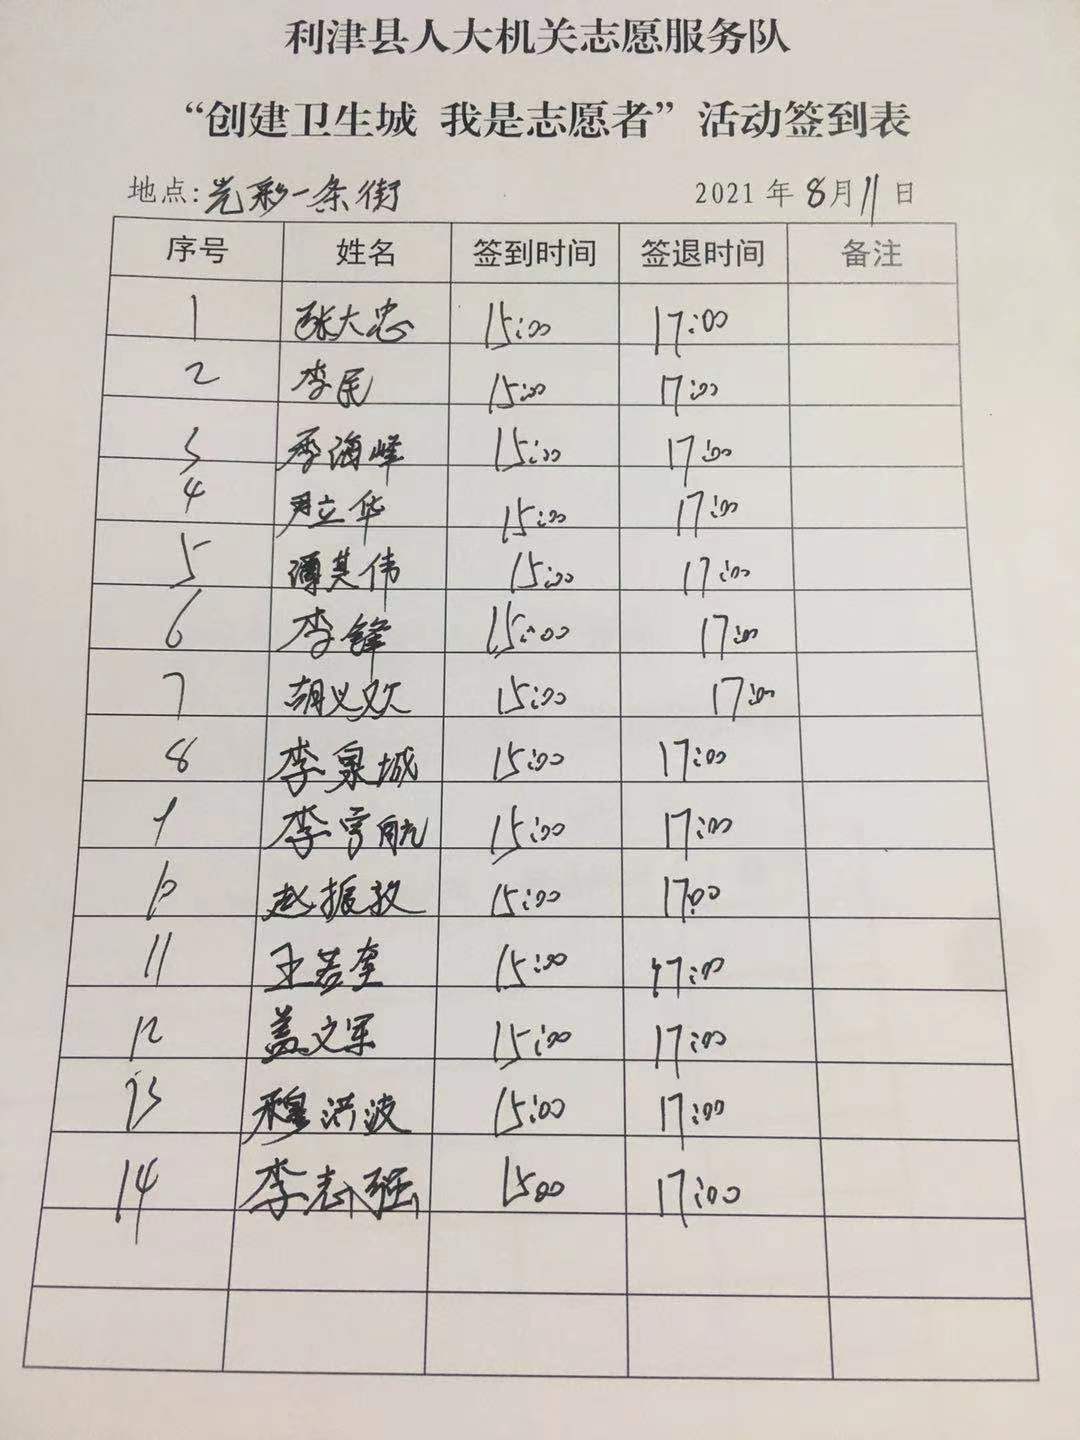 利津县人大机关志愿服务队
“创建卫生城 我是志愿者”活动签到表
地点:光彩一条街 2021年8月11日
序号 姓名 签到时间 签退时间 备注
1 张大忠 15:00 17:00
2 李民 15:00 17:00
3 李海峰 15:00 17:00
4 尹立华 15:00 17:00
5 谭其伟 15:00 17:00
6 李锋 15:00 17:00
7 胡义欢 15:00 17:00
8 李泉城 15:00 17:00
9 李雪航 15:00 17:00
10 赵振 15:00 17:00
11 王若奎 15:00 17:00
12 盖文军 15:00 17:00
13 穆洪波 15:00 17:00
14 李志强 15:00 17:00